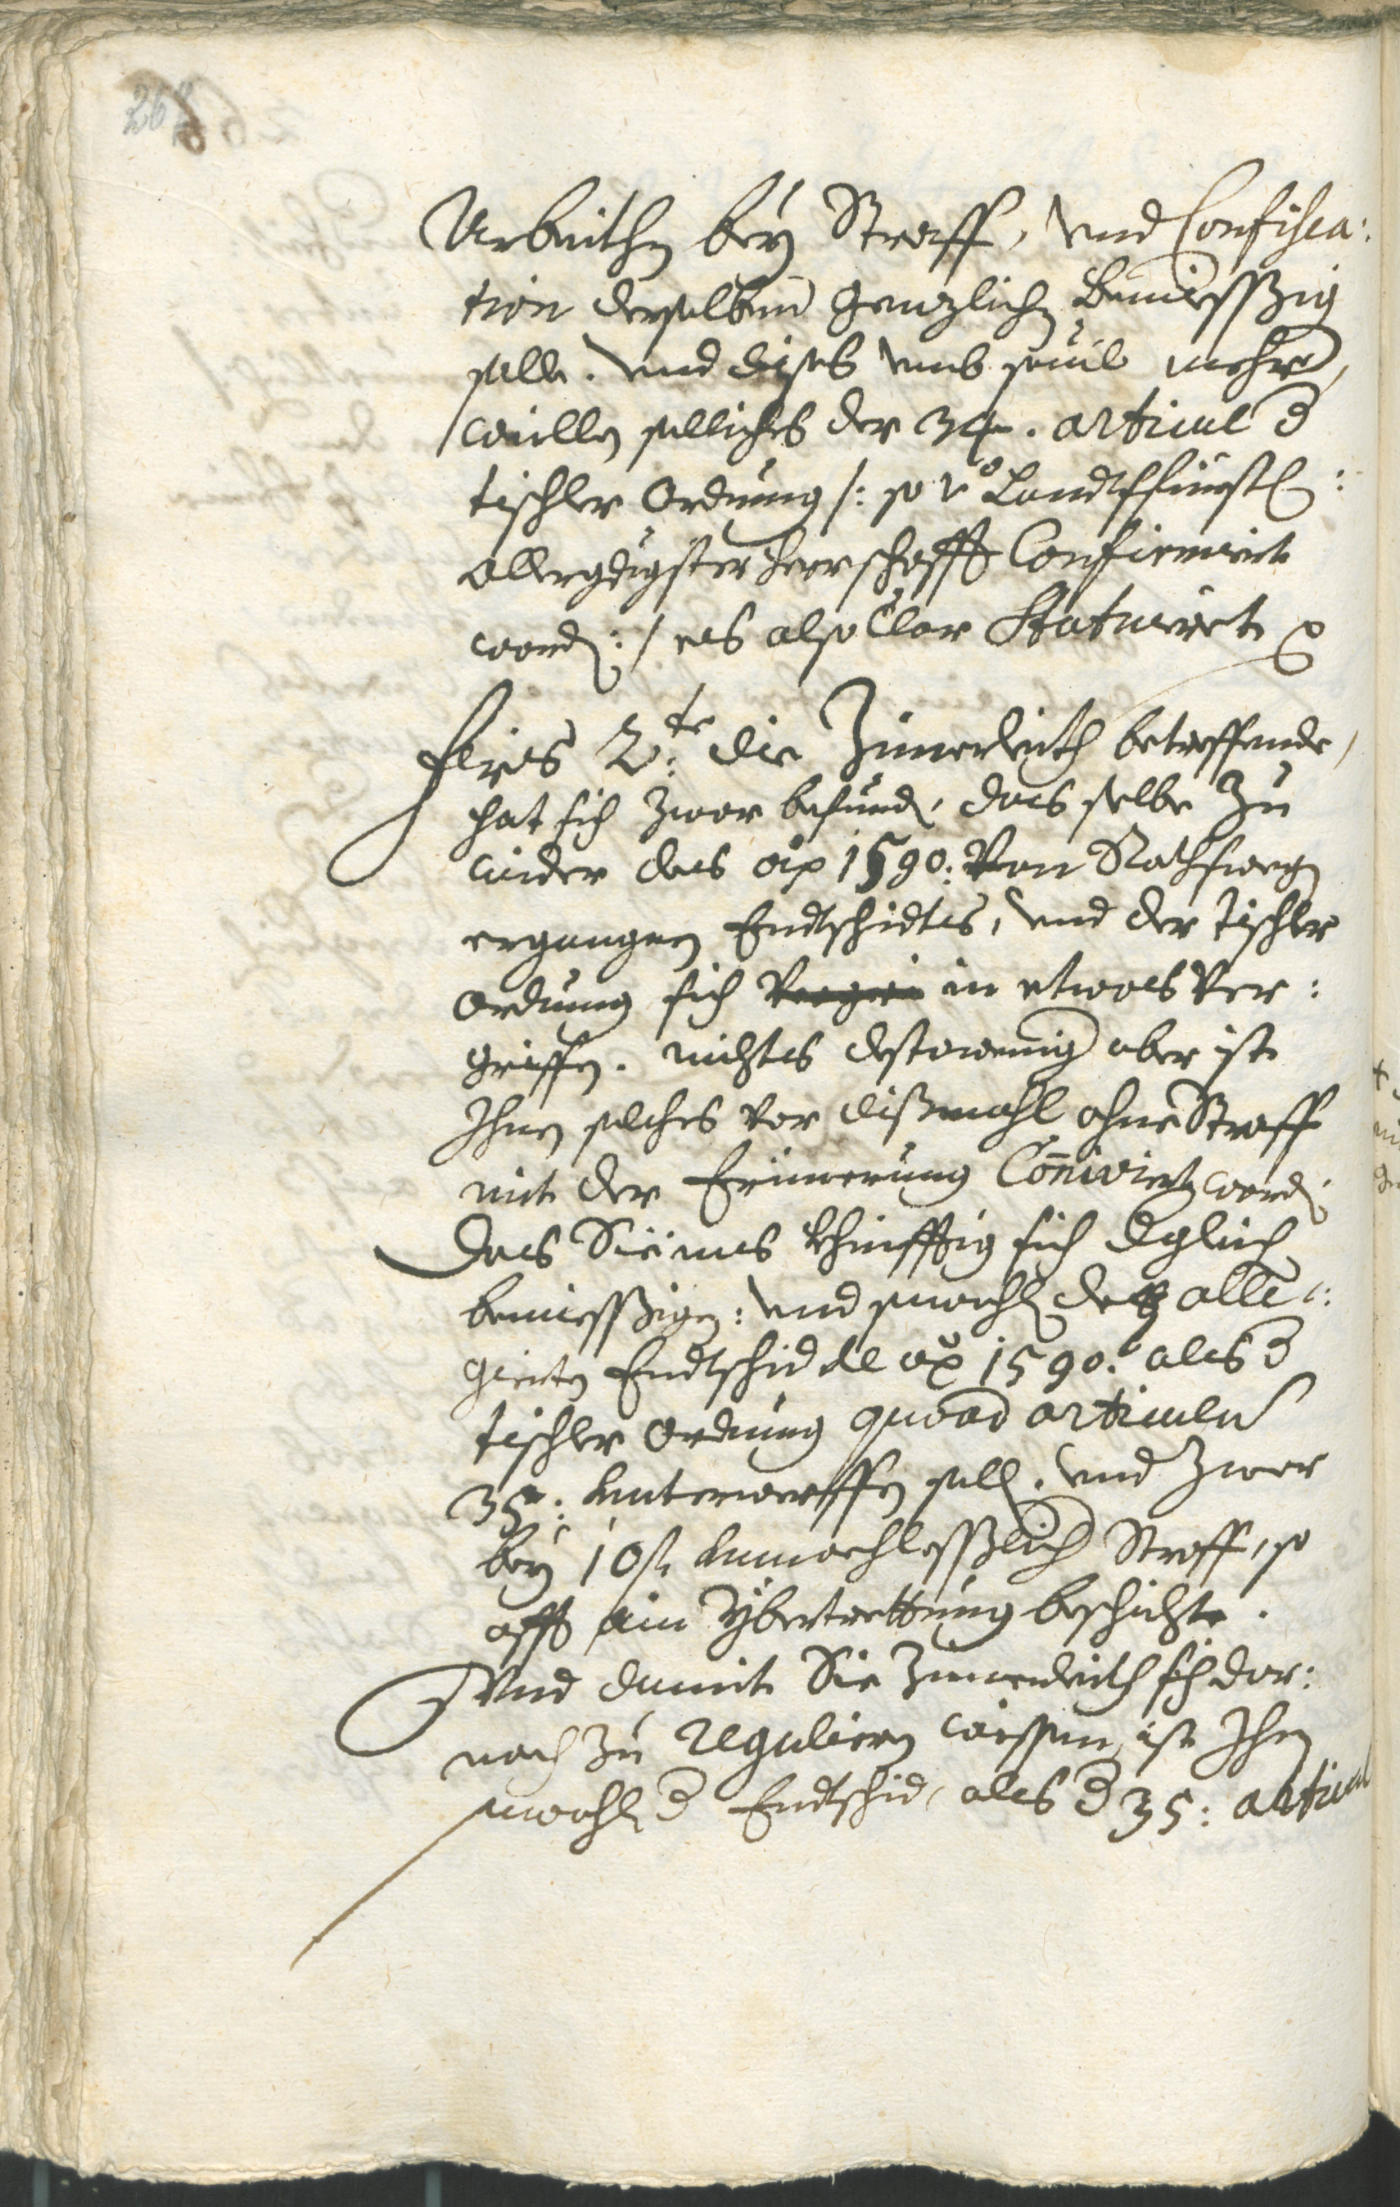 268
Arbeithen beÿ Straff, vnd Confisca:
tion derselben genzlichen bemiessßig
solle. vnd dises vmb souil mehr,
weillen solliches der 34. articul d
tischler Ordnung /: so vo Landtsfürstl:
allergdigster herrschafft Confirmiert
word: / es also Clar Statuiert
Firs 2te: die Zimerleith betreffende,
hat sich zwar befund, das selbe zu
wider des aõ 1590: von Rathswegen
ergangnen Endtschidts, vnd der tischler
ordnung sich in etwas ver:
griffen. nichts destowenig aber ist
Ihnen solches vor dißmahl ohne Straff
mit der Erinnerung Conniviert word
das Sie ins khinfftig sich dgleich
bemiessßigen: vnd sowohl dem alle:
gierten Endtschid de aõ 1590. als d
tischler Ordnung quoad articulu
35: Vnterwerffen soll. vnd zwar
beÿ 10 f. vnnachlessßlich Straff, so
offt ain yberttrettung beschicht.
Vnd damit Sie Zimerleith sich dar:
nach zu reguliern wissen, ist Ihnen
sowohl d Endtschid, als d 35: articul